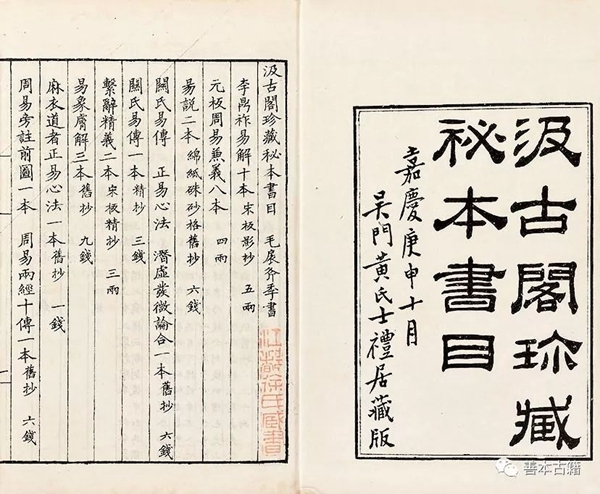 汲古閣珎藏
祕本書目
嘉慶庚申十月
吳門黃氏士禮居藏版
汲古閣珍藏秘本書目 毛扆斧季書
李鼎祚易解十本 宋板影抄 五兩
元板周易兼義八本 四兩
易說二本 綿紙硃砂格舊抄 六錢
關氏易傳 正易心法 潛虛發微論合一本舊抄 六錢
關氏易傳一本精抄 三錢
繫辭精義二本宋板精抄 三兩
易象膚解三本舊抄 九錢
麻衣道者正易心法一本舊抄 一錢
周易旁註前圖一本 周易兩經十傳一本舊抄 六錢
善本古籍